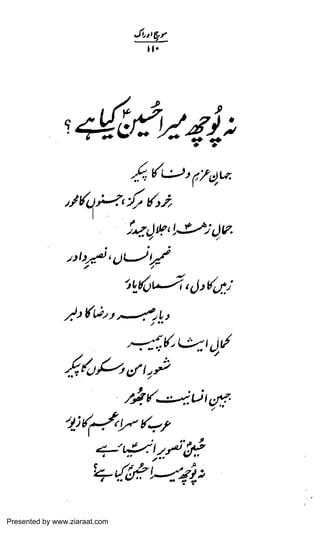 موجِ ادراک
۱۱۰
نہ پُوچھ میرا حُسینؑ کیا ہے؟
جہانِ عزمِ وفا کا پیکر
خِرد کا مرکز، جنوں کا محور
جمالِ زھراؑ، جلالِ حیدرؑ
ضمیرِ انساں، نصیرِ داور
زمیں کا دل، آسماں کا یاور
دیارِ صبر و رضا کا دلبر
کمالِ ایثار کا پیمبر
شعورِ امن و سکوں کا پیکر
جبینِ انسانیت کا جُھومر
عرب کا سہرا، عجم کا زیور
حُسینؑ تصویرِ انبیاءؑ ہے
نہ پُوچھ میرا حُسینؑ کیا ہے؟
Presented by www.ziaraat.com